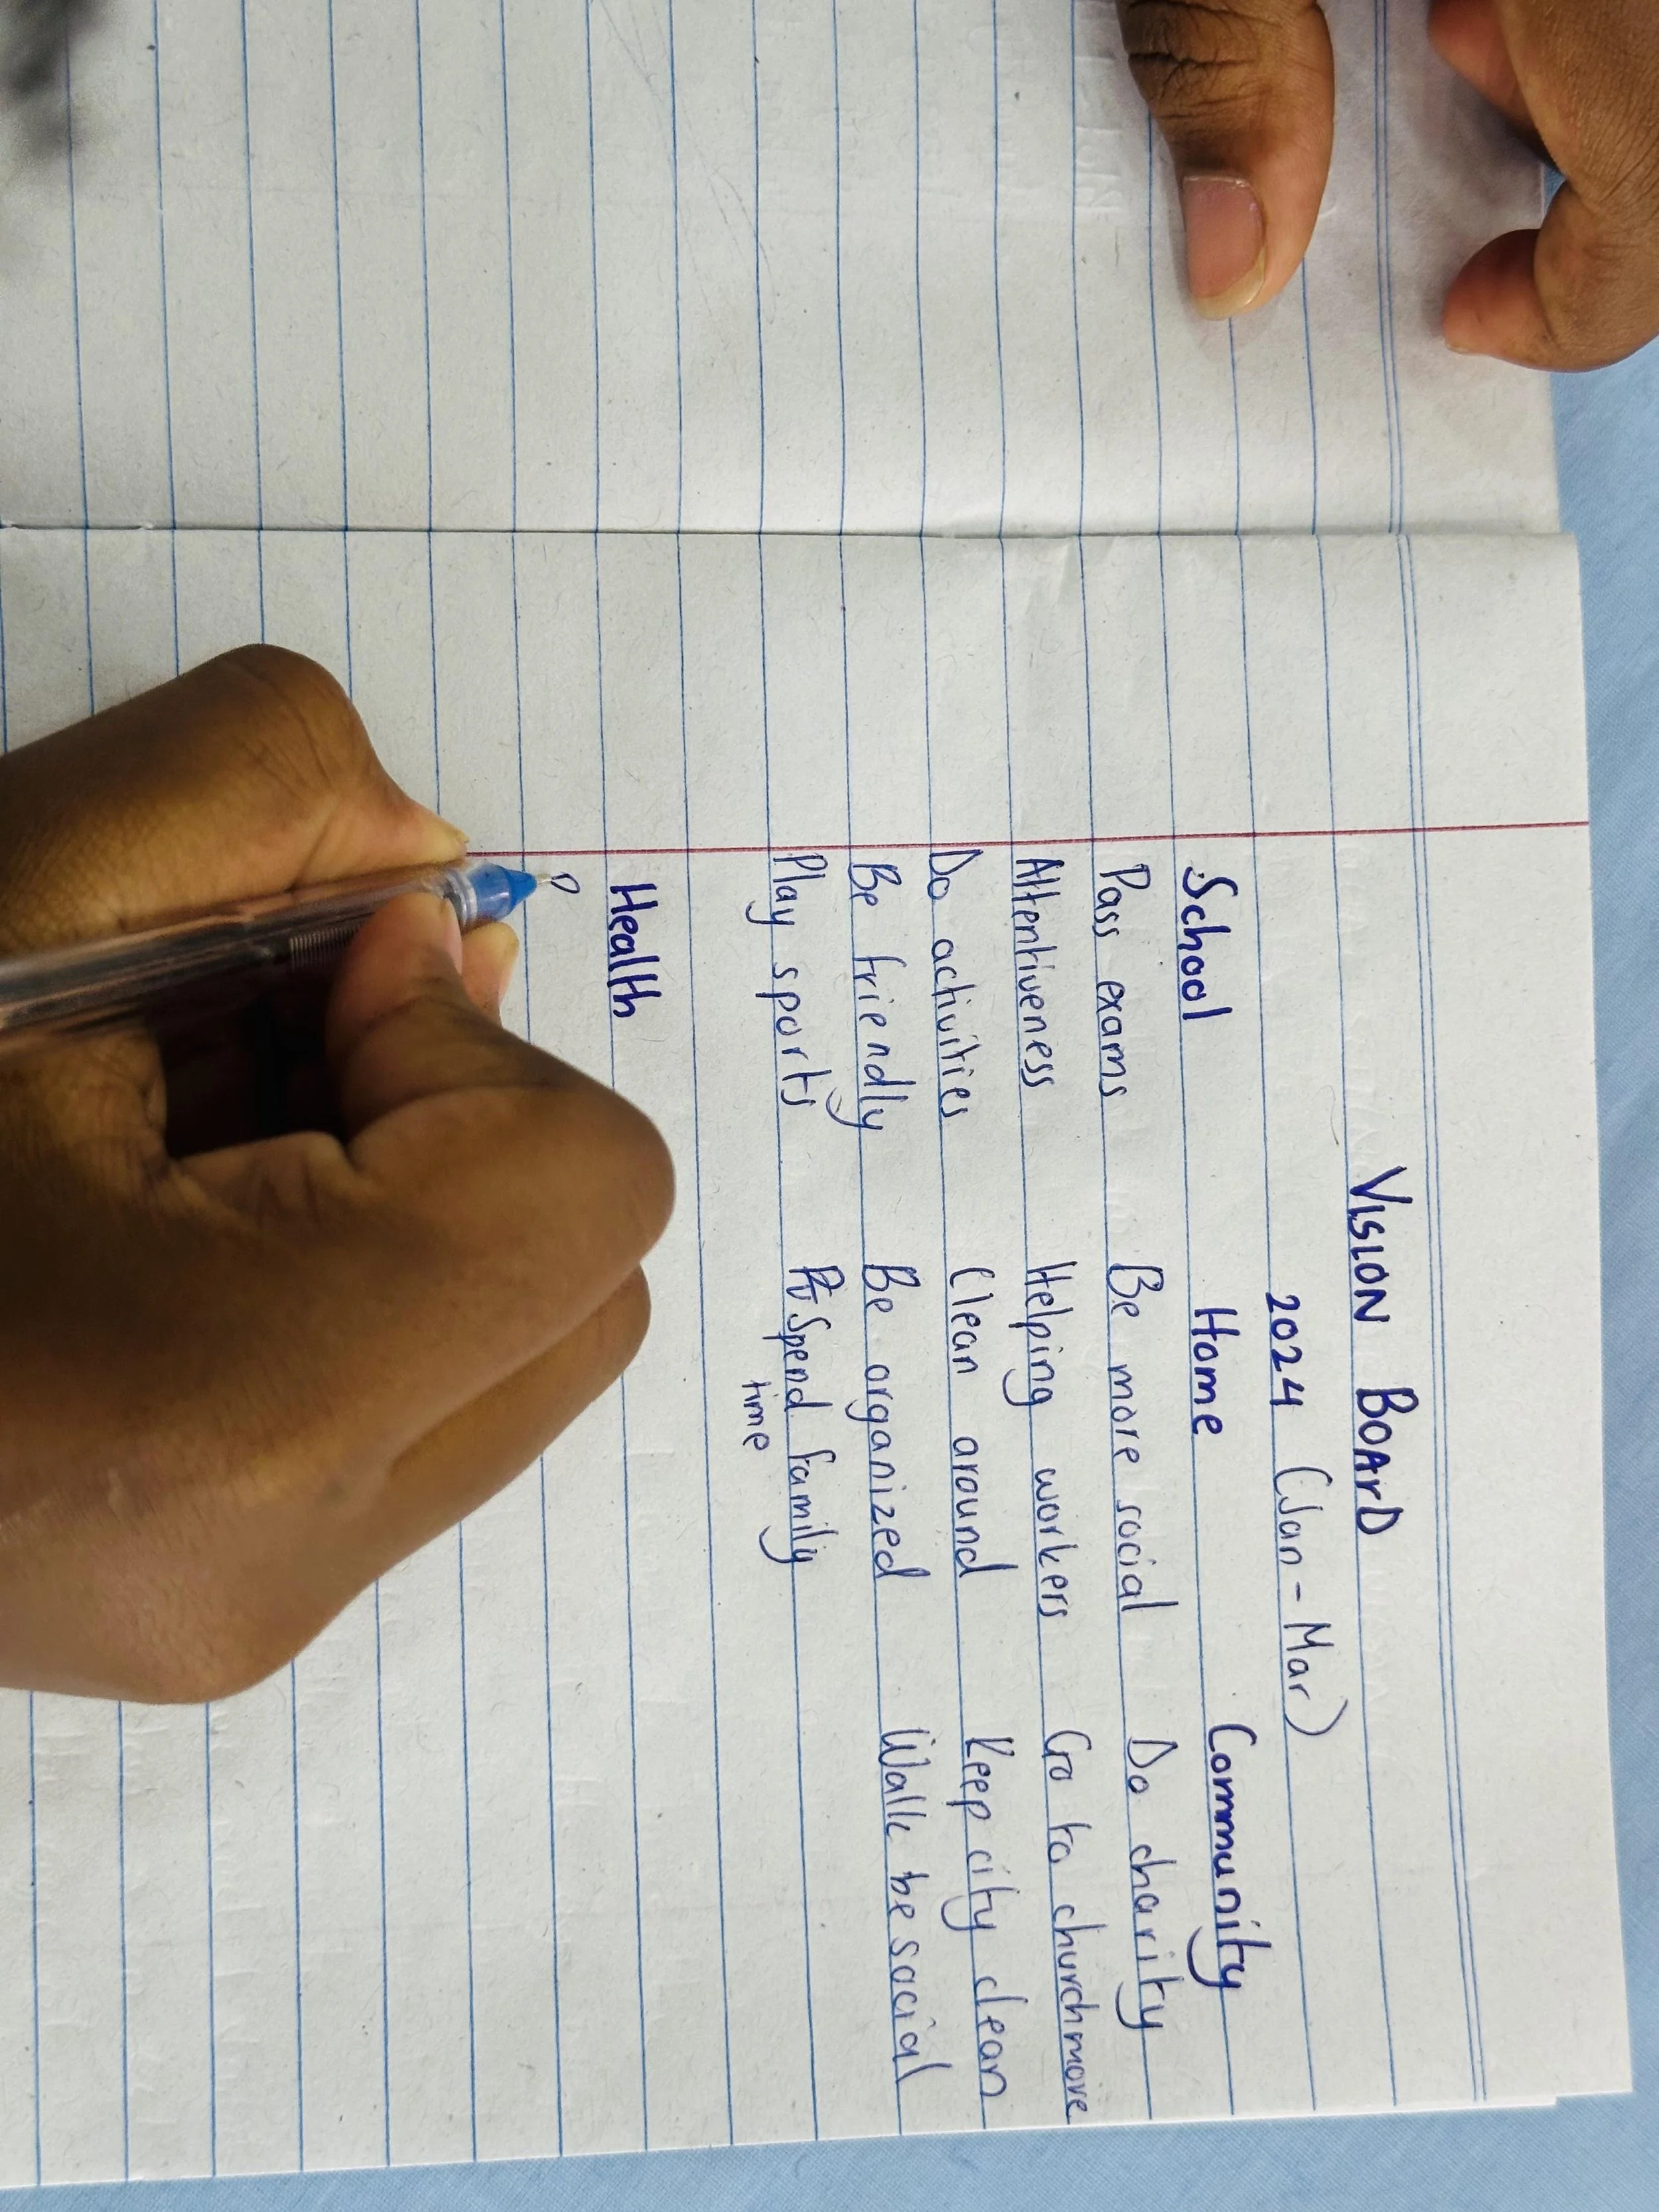 VISION BOArD
2024 (Jan - Mar)
School Home Community
Pass exams Be more social Do charity
Attentiveness Helping workers Go to church more
Do activities Clean around Keep city clean
Be friendly Be organized Walk be social
Play sports Spend family
time
Health